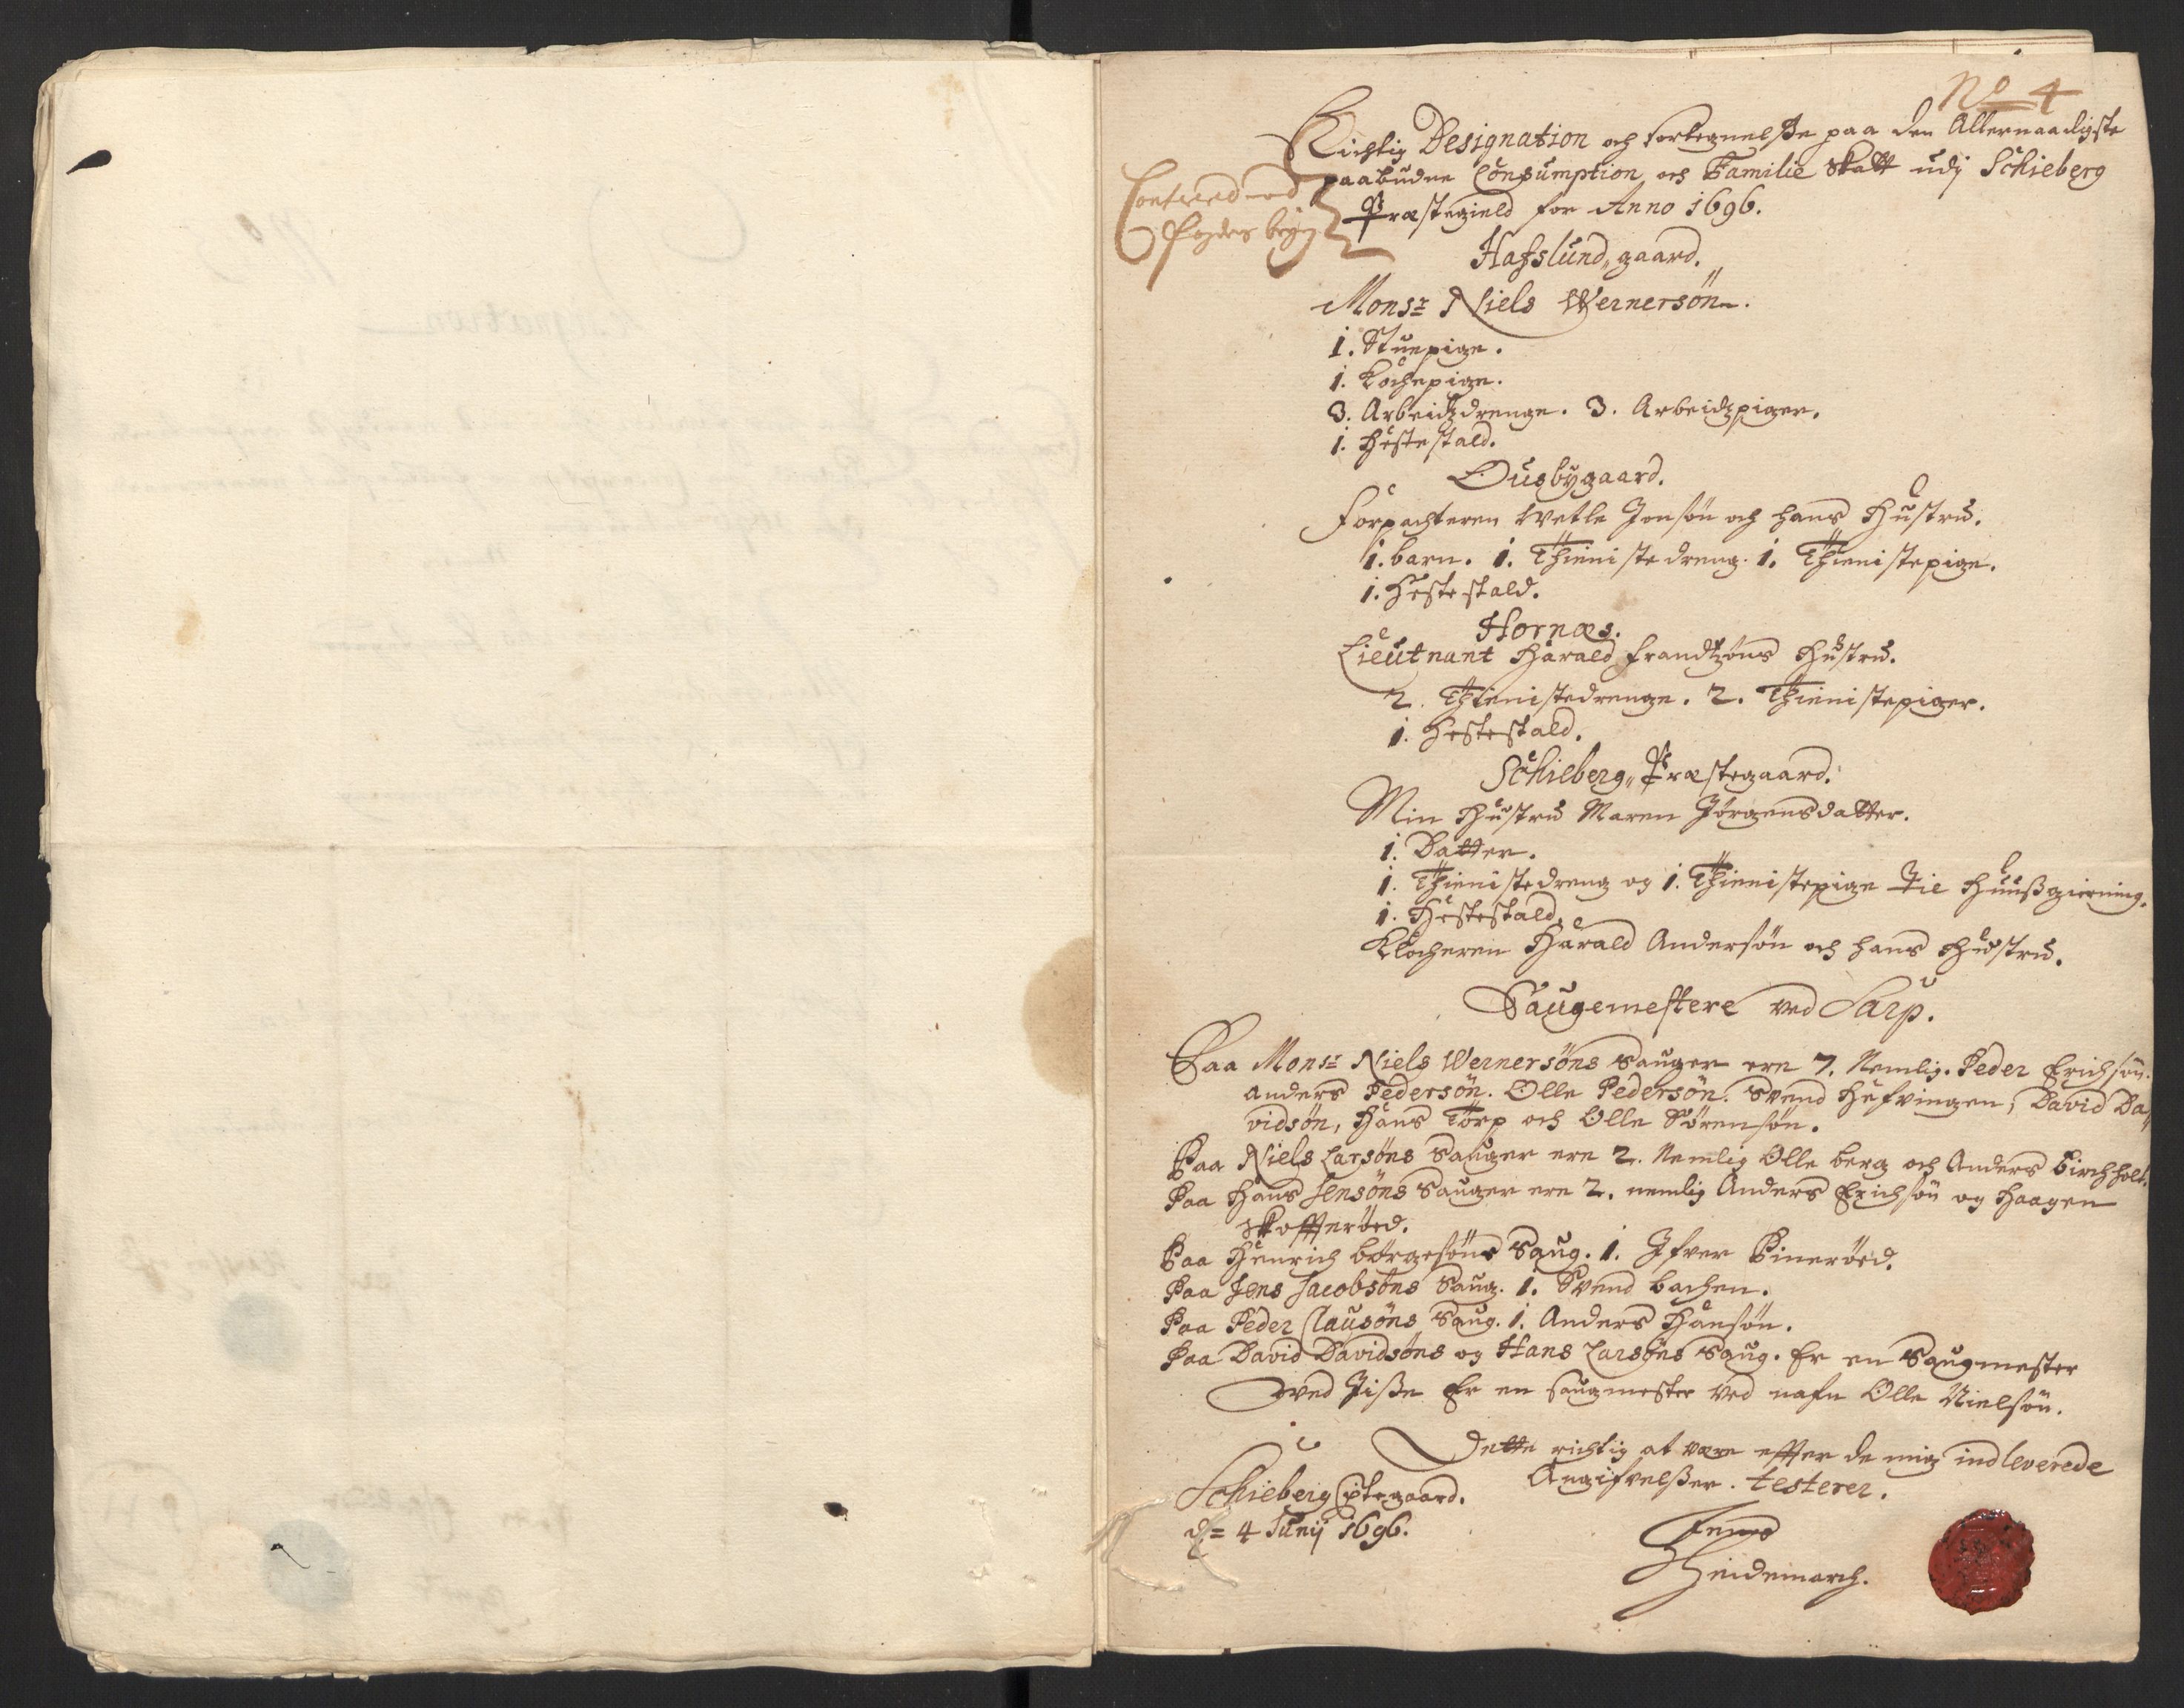 No 4
Richtig Designation och fortegnelse paa den Allernaadigste
paabudne Consumption och Familie Skatt udj Schieberg
Præstegield for Anno 1696.
Hafslund„gaard.
Monsr Niels Wernersøn.
1. Stuepige.
1. Kochepige.
3. Arbeidzdrenge. 3. Arbeidzpiger.
1. Hestestald.
Ousbygaard.
Forpachteren Wetle Jonsøn och hans Hustru.
1. barn. 1. Thienistedreng. 1. Thienistepige.
1. Hestestald.
Hornæs.
Lieutnant Harald Frandtzøns Hustru.
2. Thienistedrenge. 2. Thienistepiger.
1. Hestestald.
Schieberg„Præstegaard.
Min Hustru Maren Jørgensdatter.
1. Datter.
1. Thienistedreng og 1. Thienistepige til Huußgierning.
1. Hestestald.
Klocheren Harald Andersøn och hans Hustru.
Saugemestere ved Sarp.
Paa Monsr Niels Wernersøns Sauger ere 7. Nemlig. Peder Erichsøn.
Anders Pedersøn. Olle Pedersøn. Svend Hefvingen, David Da„
vidsøn, Hans Torp och Olle Sørensøn.
Paa Niels Larsøns Sauger ere 2. Nemlig Olle berg och Anders Birchholt.
Paa Hans Jensøns Sauger ere 2. nemlig Anders Erichsøn og Haagen
Skofferøed.
Paa Henrich børgesøns Saug. 1. Ifver Pinerøed.
Paa Jens Jacobsøns Saug. 1. Svend bachen.
Paa Peder Clausøns Saug. 1. Anders Hansøn.
Paa David Davidsøns og Hans Larsøns Saug. Er en Saugmester
ved Jiße Er en saugmester ved nafn Olle Nielsøn.
Dette richtig at være effter de mig indleverede
Angifvelßer. testerer.
Schieberg Præstegaard.
d= 4 Junij 1696.
Jens
Heidemarch.